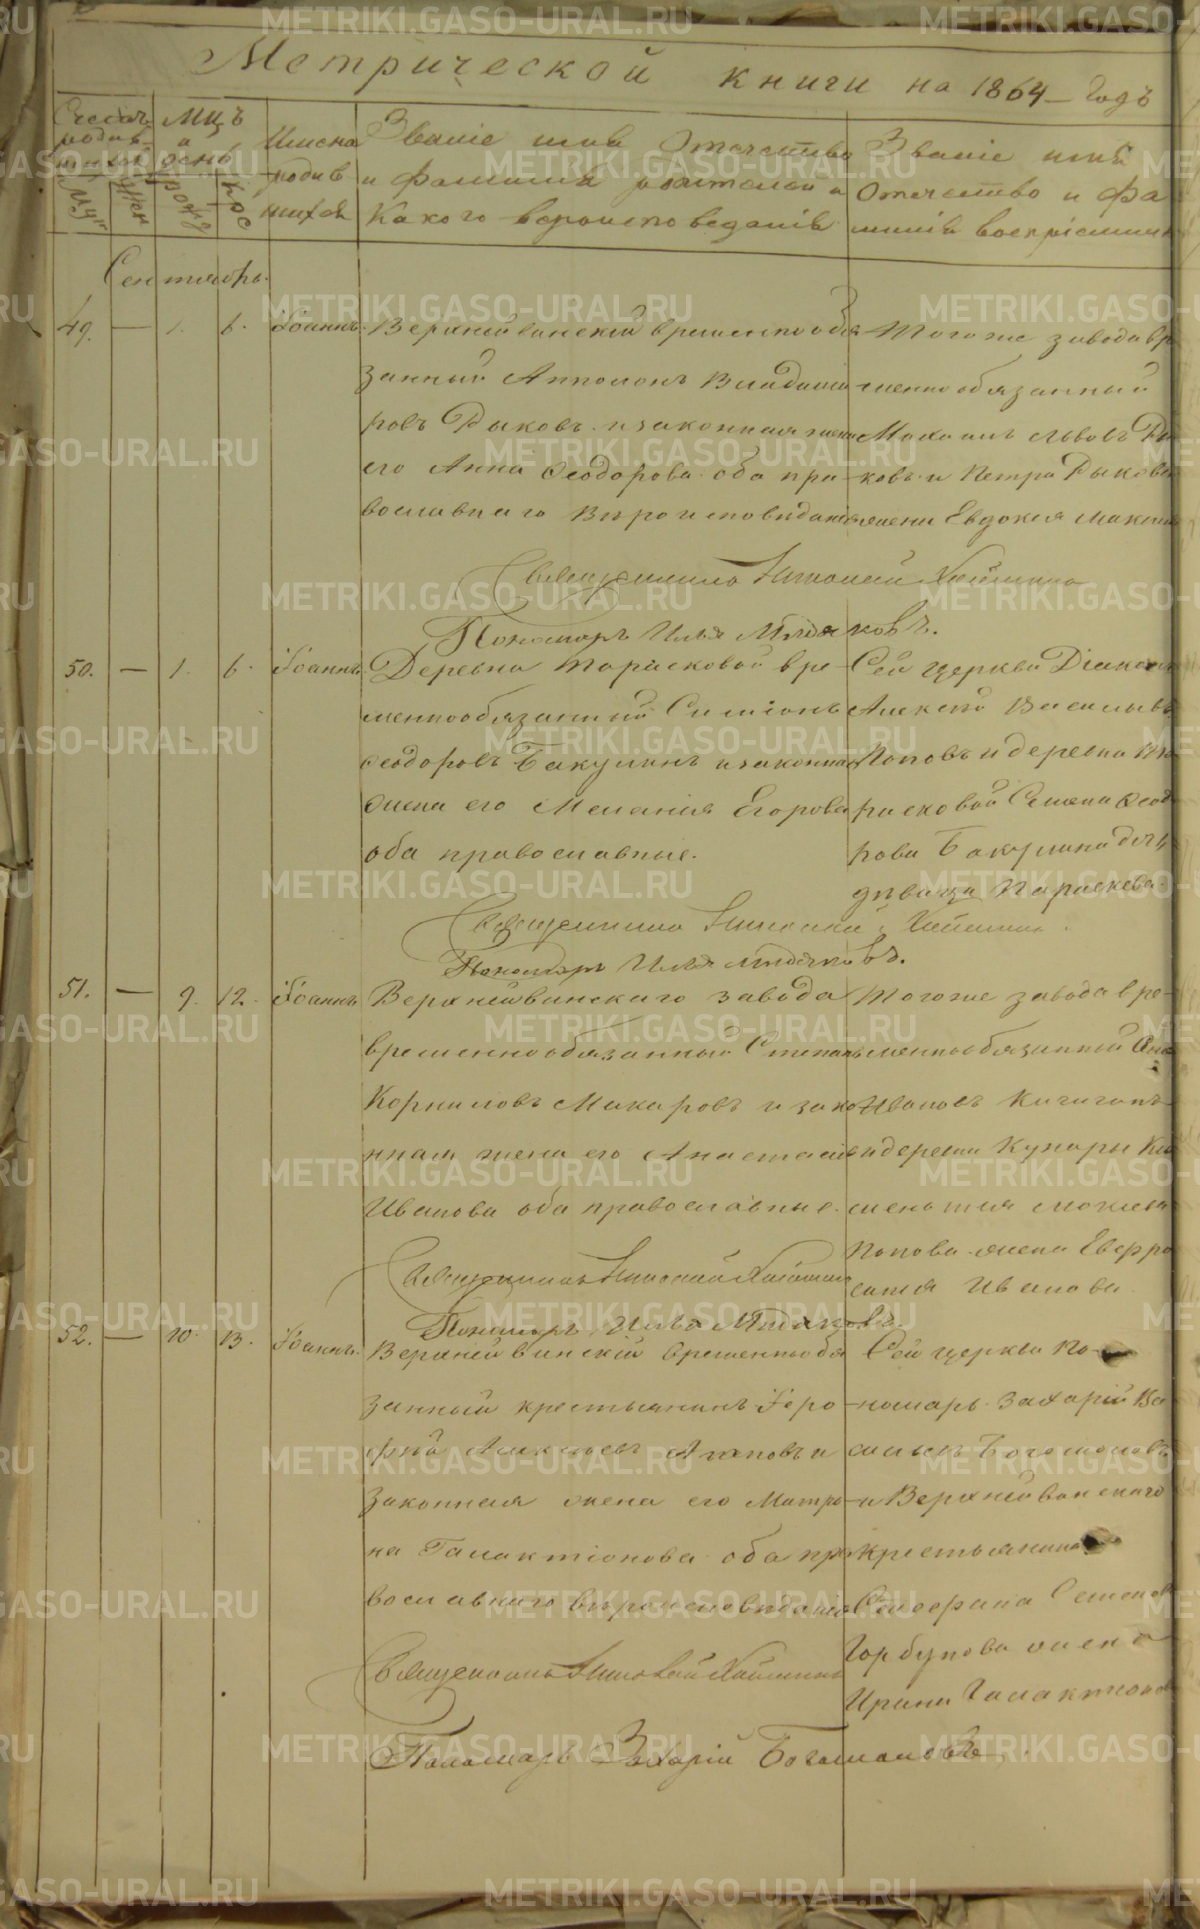 Метрической книги на 1864 Годъ
Счетъ родив-шихся
Муж
Жен
Мцъ и день
рожд
Крес
Имена родившихся
Званіе имя Отчество и фамилия родителей и Какого вероисповеданія
Званіе имя Отчество и Фамилія воспріемник
Сентябрь.
49. — 1. 6. Іоаннъ
Верхнейвинский временнообя
занный Апполонъ Владими
ровъ Рыковъ и законная жена
его Анна Феодорова оба пра-
вославнаго Вѣроисповѣданія
Тогоже завода вр
менно обязанный
Михаилъ Львовъ Ры
ковъ и Петра Рыкова
жена Евдокия Максим
Священникъ Николай Хаймин
Пономарь Илья Мѣдяковъ.
50. — 1. 6. Іоаннъ
Деревни Тарасковой вре-
меннообязанный Симеонъ
Феодоровъ Бакулинъ и законная
жена его Мелания Егорова
оба православные.
Сей церкви Діаконъ
Алексѣй Васильевъ
Поповъ и деревни Та
расковой Семена Феод
рова Бакулина дочь
дѣвица Параскева
Священникъ Николай Хаймин
Пономарь Илья Мѣдяковъ.
51. — 9. 12. Іоаннъ
Верхнейвинскаго завода
временнообязанный Степанъ
Корниловъ Макаровъ и зако
нная жена его Анастасія
Иванова оба православные.
Тогоже завода вре-
меннообязанный
Ивановъ Кичигинъ
и деревни Кунары
Попова жена Евфро
синія Иванова.
Священникъ Николай Хаймин
Пономарь Илья Мѣдяковъ.
52. — 10. 13. Іоаннъ.
Верхнейвинскій временнообя
занный крестьянинъ Іеро
фѣй Алексѣевъ Аѳиповъ и
Законная жена его Матро
на Галактіонова оба пра
вославнаго вѣроисповѣданія
Сей церкви По-
номарь Захарій Ва
сильевъ Богомоловъ
и Верхнейвинскаго
крестьянина
Семенов
Горбунова жена
Ирина Галактионов
Священникъ Николай Хаймин
Пономарь Захарій Богомоловъ
METRIKI.GASO-URAL.RU